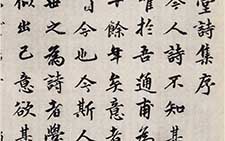 堂詩集序
今人詩不知其
於吾通甫為
十餘年矣意甚
今也今斯人
世之為詩者學
似出己意欲其